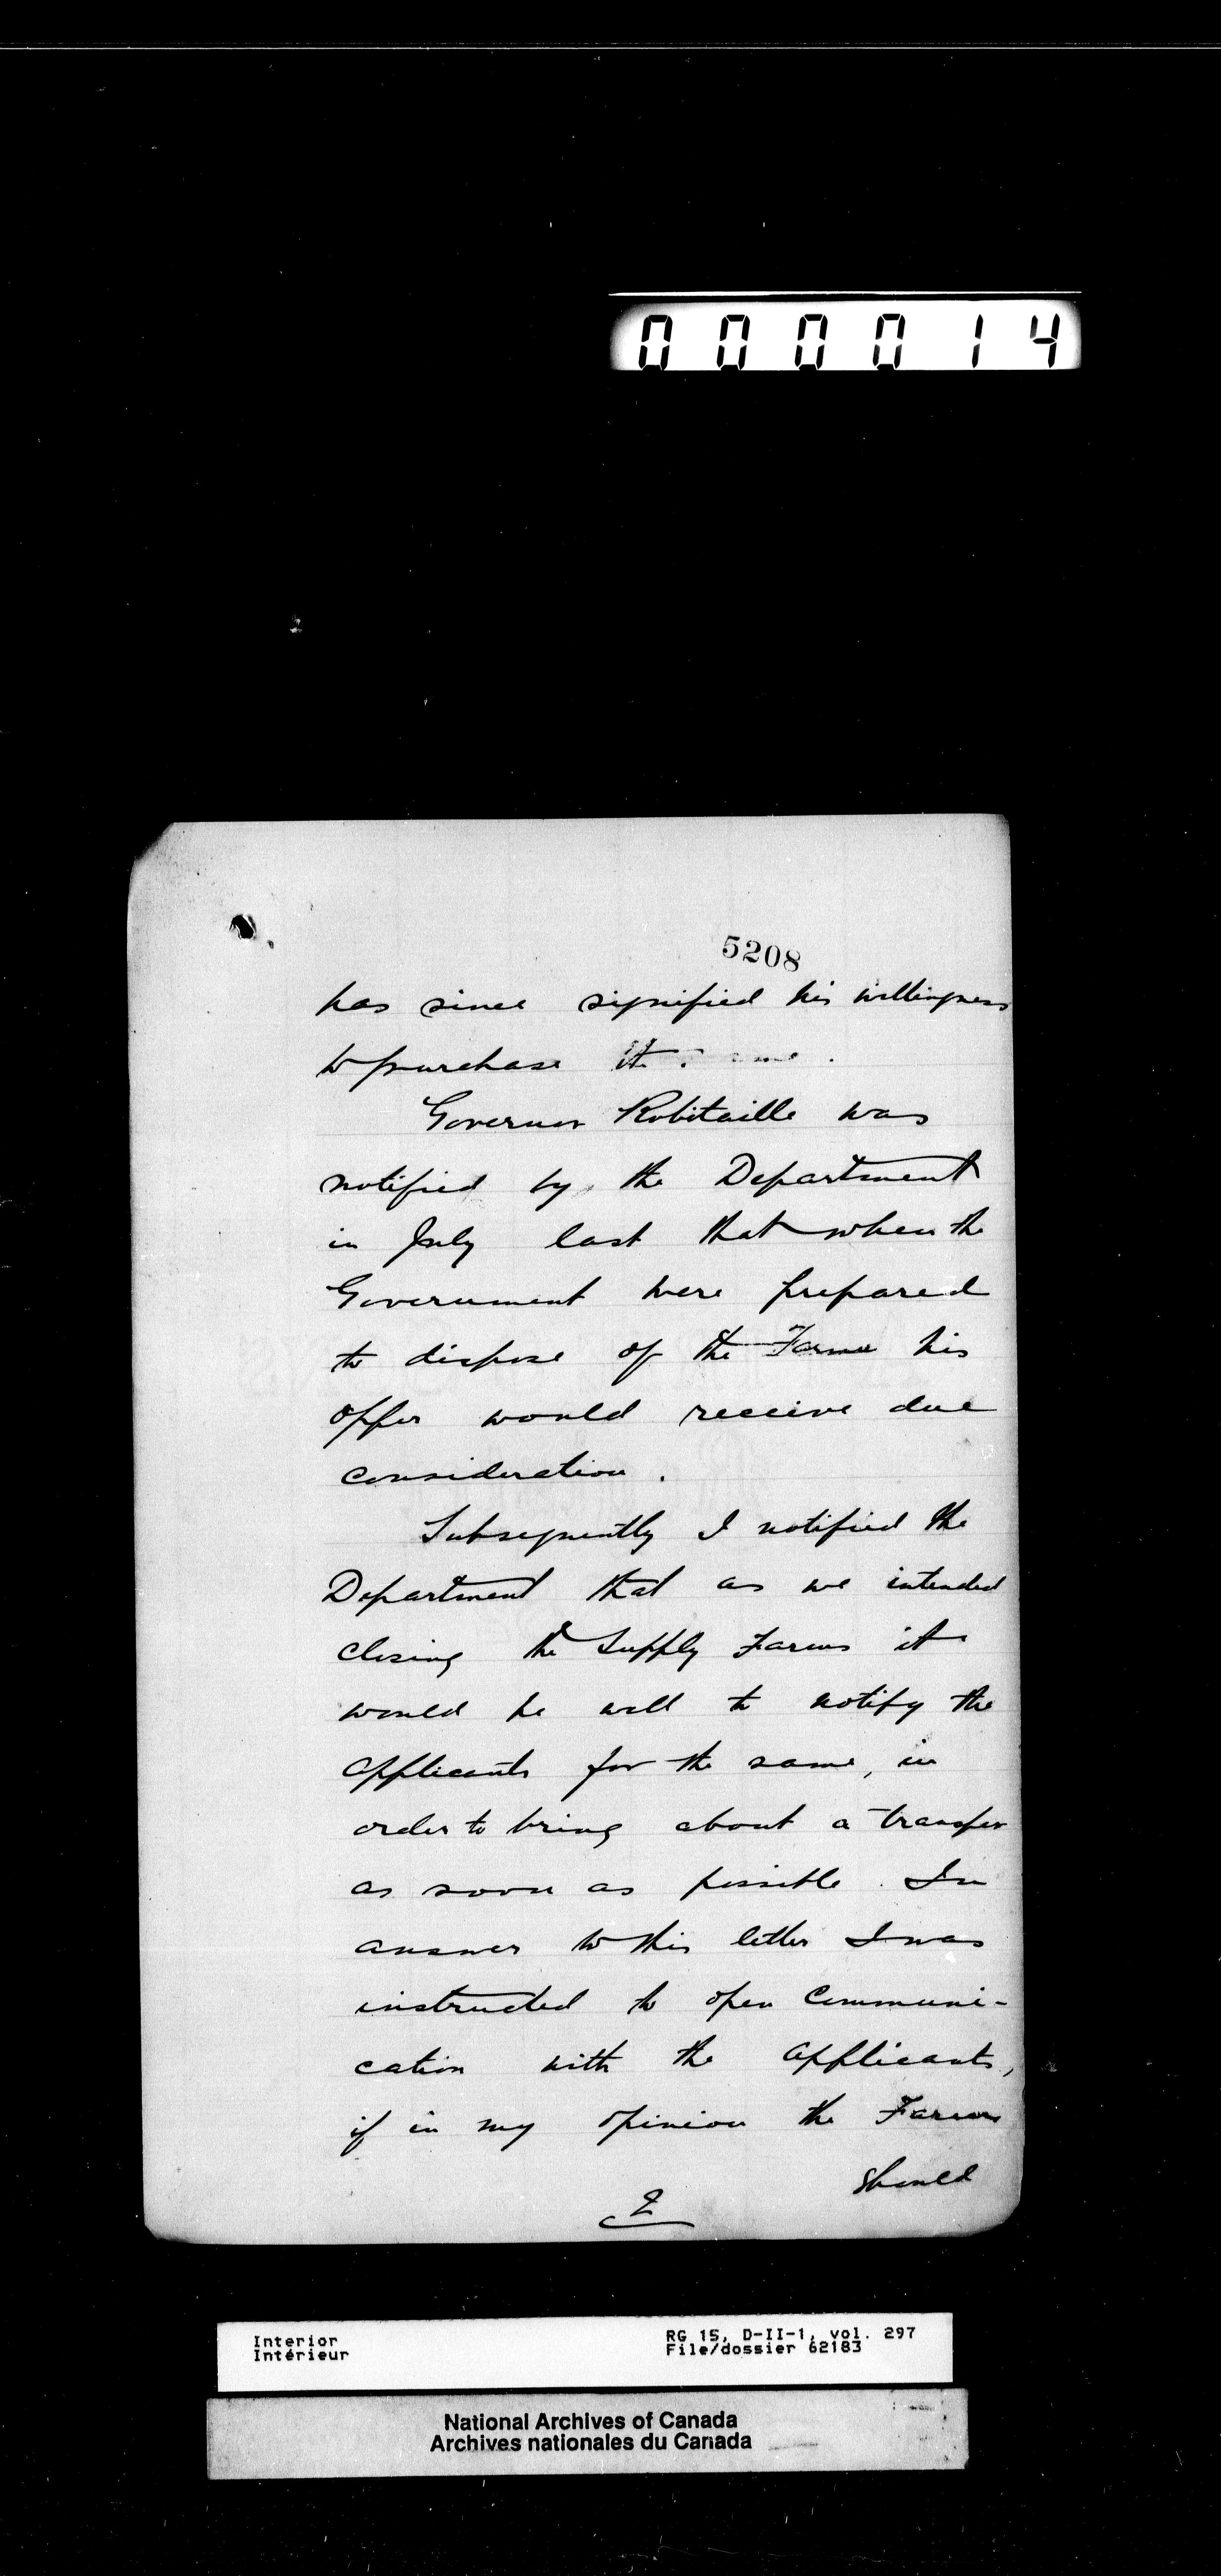 000014
5208
has since signified his willingness
to purchase it.
Governor Robitaille was
notified by the Department
in July last that when the
Government were prepared
to dispose of the Farms his
offer would receive due
consideration.
Subsequently I notified the
Department that as we intended
closing the Supply Farms it
would be well to notify the
applicants for the same, in
order to bring about a transfer
as soon as possible. In
answer to this letter I was
instructed to open communi-
cation with the applicants,
if in my opinion the Farms
should
2
Interior
Intérieur
RG 15, D-II-1, vol. 297
File/dossier 62183
National Archives of Canada
Archives nationales du Canada